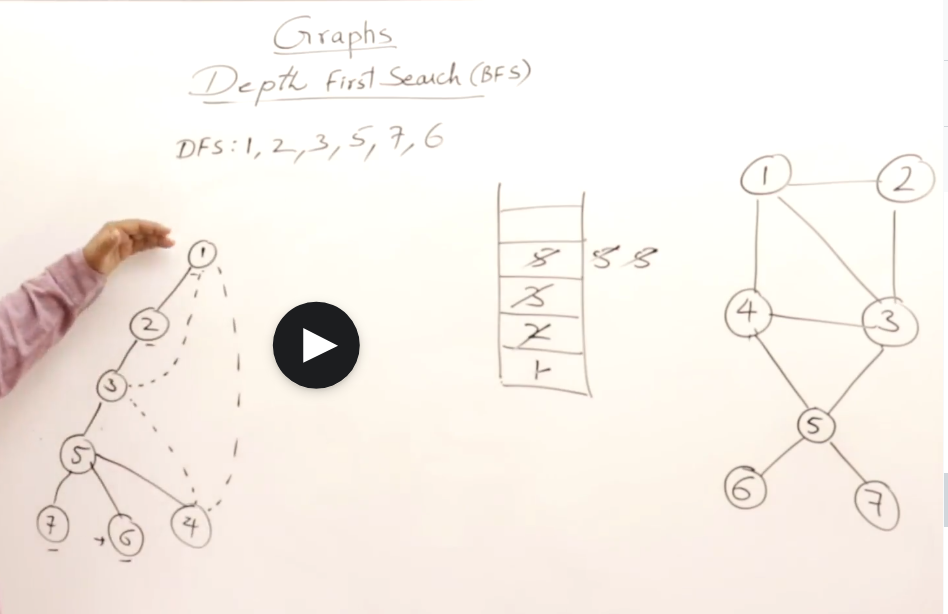 Graphs
Depth First Search (BFS)
DFS: 1, 2, 3, 5, 7, 6
1
2
3
5
7
6
4
5 5 5
3
2
1
1
2
4
3
5
6
7